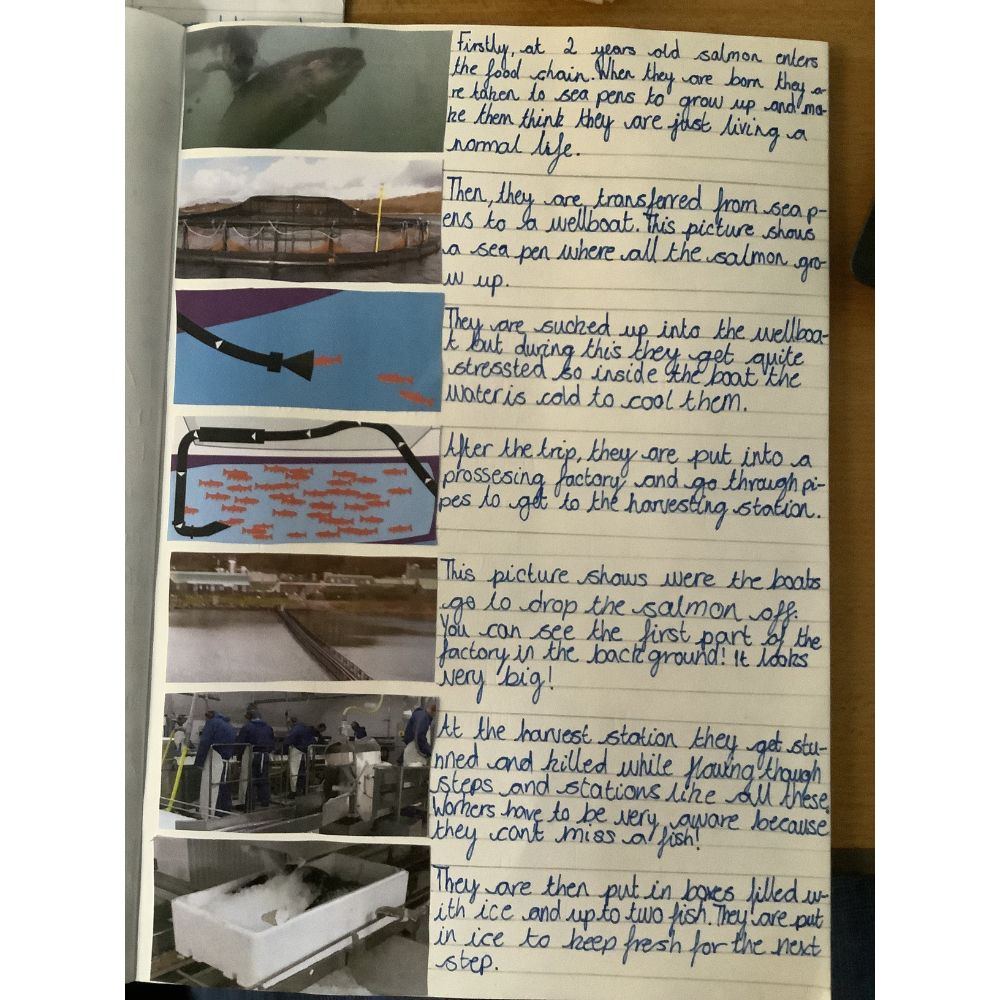 Firstly, at 2 years old salmon enters
the food chain. When they are born they a-
re taken to sea pens to grow up and ma-
ke them think they are just living a
normal life.
Then, they are transferred from sea p-
ens to a wellboat. This picture shows
a sea pen where all the salmon gro-
w up.
They are sucked up into the wellboa-
t but during this they get quite
stressted so inside the boat the
water is cold to cool them.
After the trip, they are put into a
prossesing factory and go through pi-
pes to get to the harvesting station.
This picture shows were the boats
go to drop the salmon off.
You can see the first part of the
factory in the back ground! It looks
very big!
At the harvest station they get stu-
nned and killed while flowing though
steps and stations like all these.
Workers have to be very aware because
they cant miss a fish!
They are then put in boxes filled w-
ith ice and up to two fish. They are put
in ice to keep fresh for the next
step.